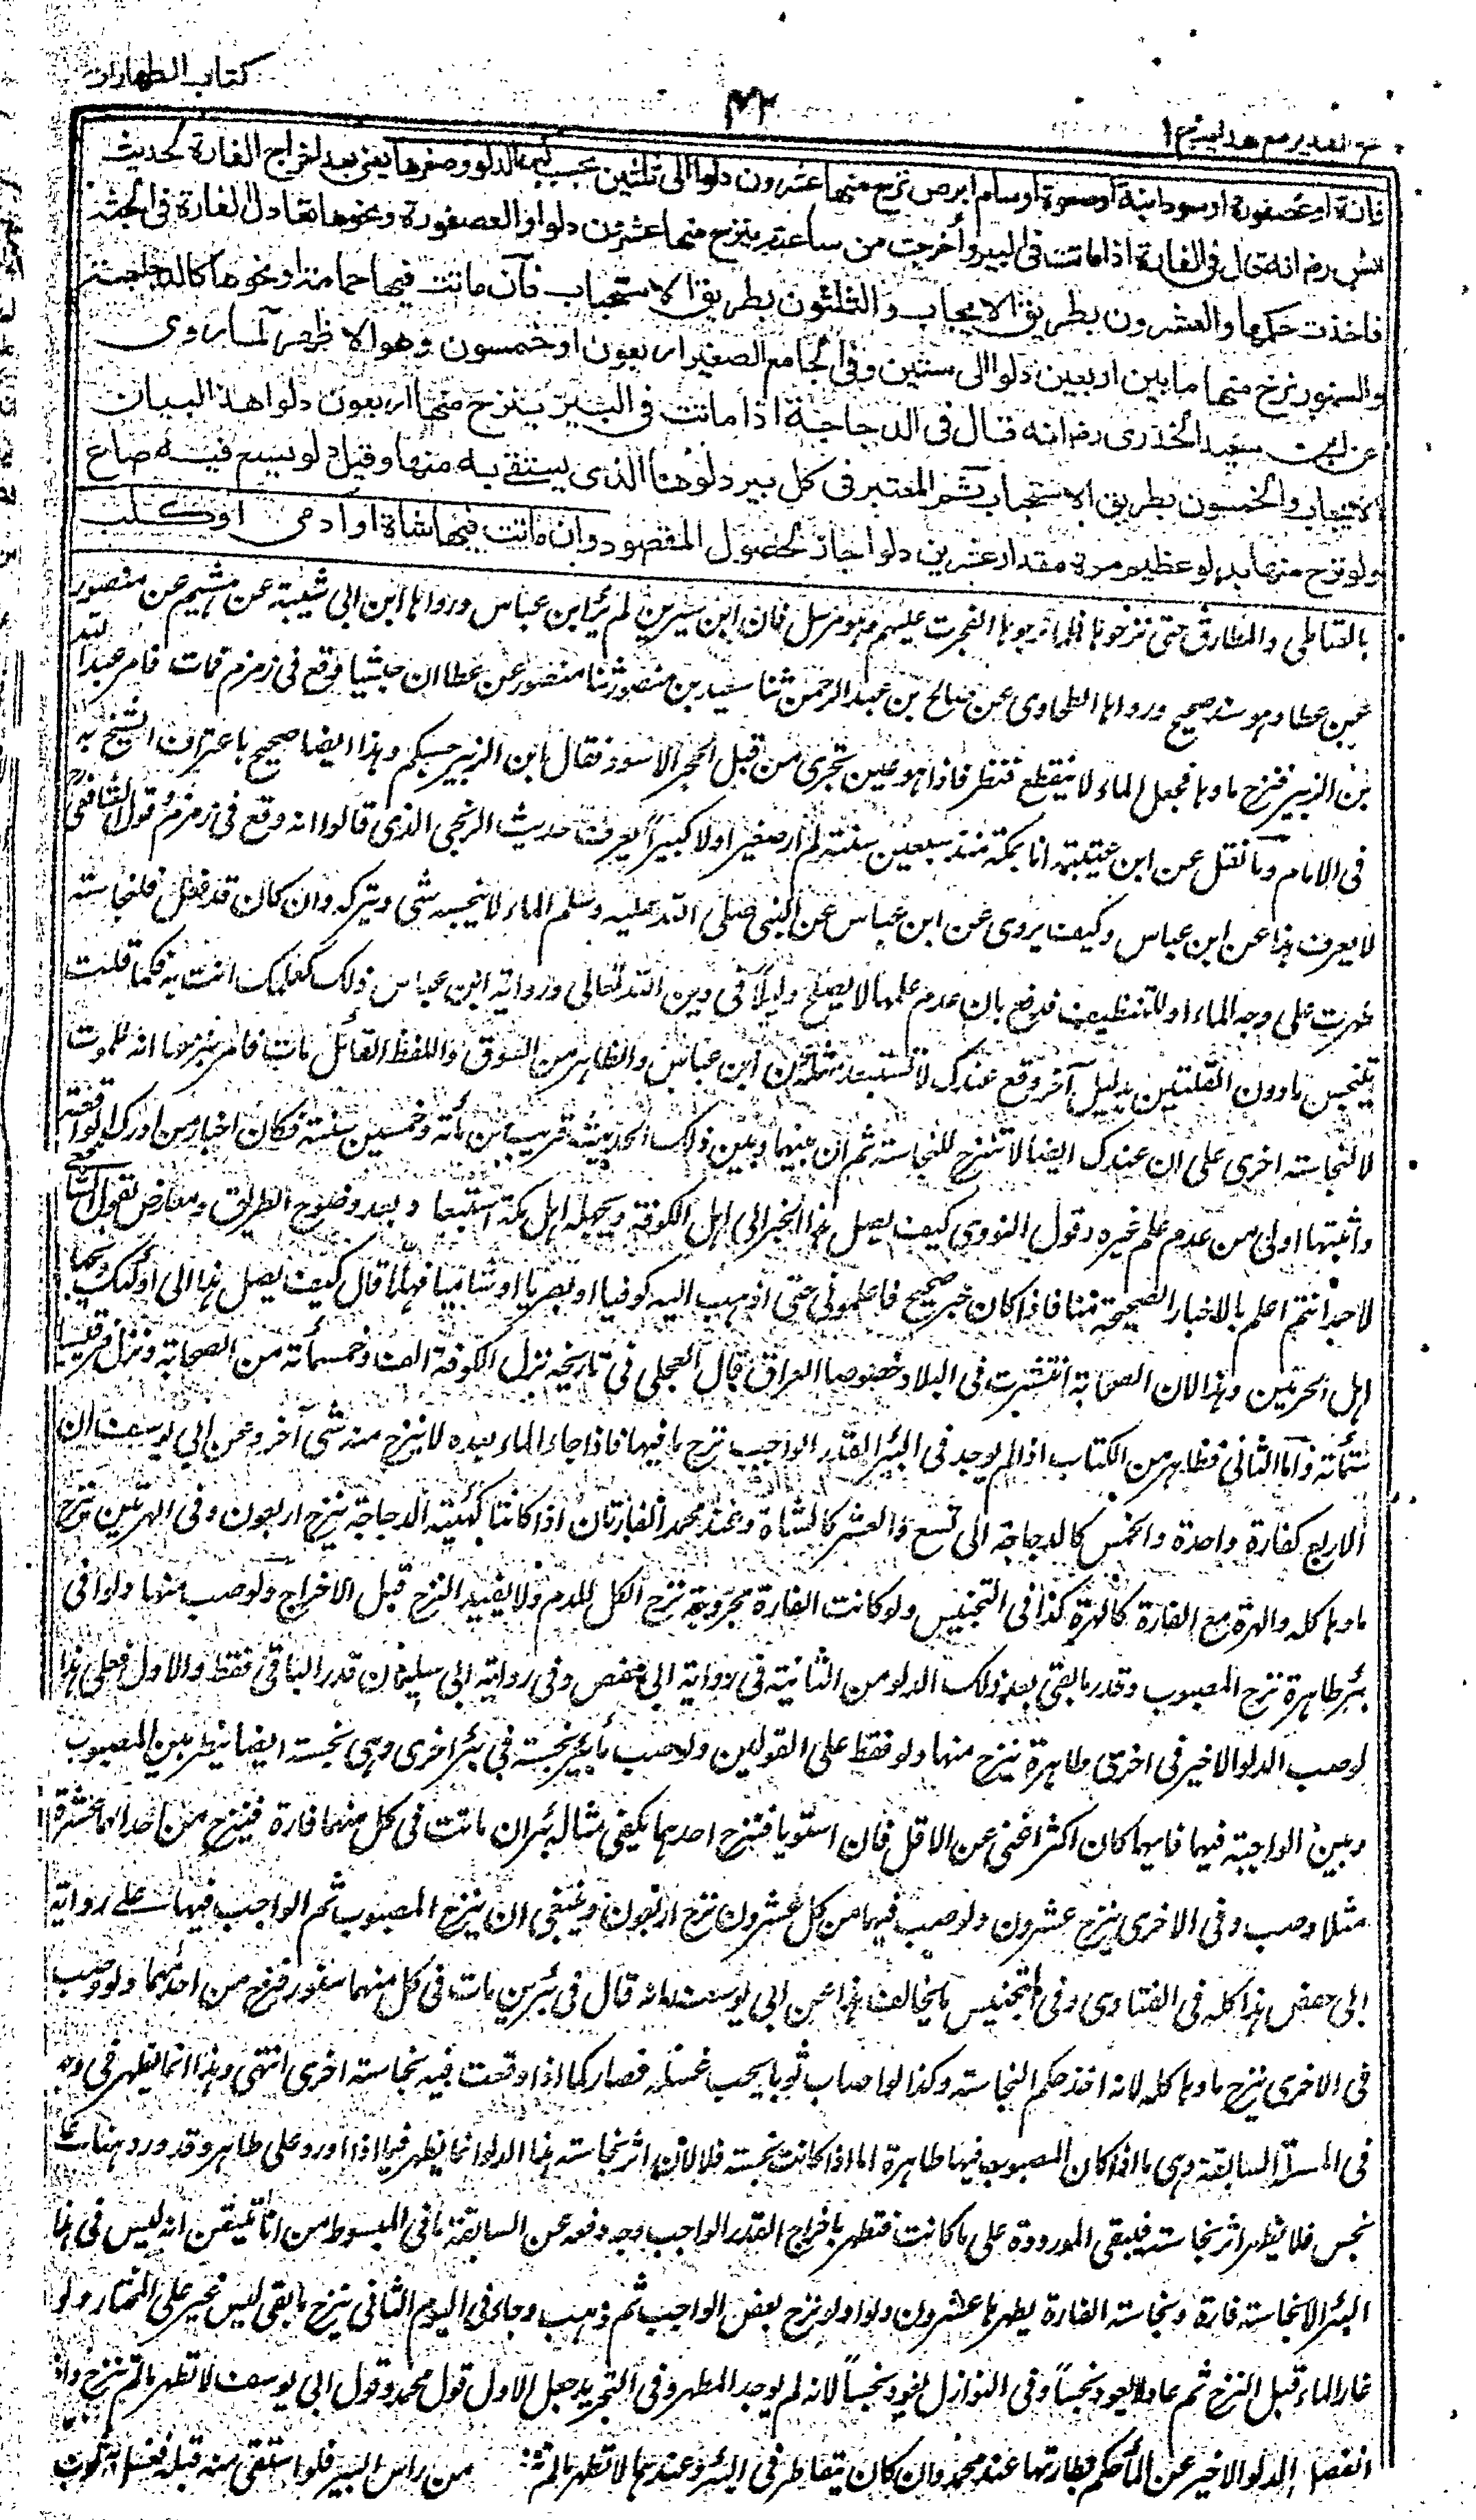 كتاب الطهارات
٤٢
فتح القدير مع هدايه ج ١
فارة او عصفورة او سودانية او صعوة او سام ابرص نزح منها عشرون دلوا الى ثلثين بحسب كبر الدلو وصغرها يعنى بعد اخراج الفارة لحديث
انس رض انه قال فى الفارة اذا ماتت فى البير وأخرجت من ساعته ينزح منها عشرون دلوا والعصفورة ونحوها تعادل الفارة فى الجثة
فاخذت حكمها والعشرون بطريق الايجاب والثلثون بطريق الاستحباب فان ماتت فيها حمامة او نحوها كالدجاجة
والسنور نزح منها ما بين اربعين دلوا الى ستين وفى الجامع الصغير اربعون او خمسون وهو الاظهر لما روى
عن ابى سعيد الخدرى رض انه قال فى الدجاجة اذا ماتت فى البير ينزح منها اربعون دلوا هذا لبيان
الايجاب والخمسون بطريق الاستحباب ثم المعتبر فى كل بير دلوها الذى يستقى به منها وقيل دلو يسع فيه صاع
ولو نزح منها بدلو عظيم مرة مقدار عشرين دلوا جاز لحصول المقصود وان ماتت فيها شاة او آدمى او كلب
بالقباطى والمطارق حتى نزحوها فلما نزحوها انفجرت عليهم وهو مرسل فان ابن سيرين لم ير ابن عباس ورواها ابن ابى شيبة عن هشيم عن منصور
عن عطا وهو سند صحيح ورواها الطحاوى عن صالح بن عبد الرحمن ثنا سعيد بن منصور ثنا منصور عن عطا ان حبشيا وقع فى زمزم فمات فامر عبد الله
بن الزبير فنزح ماؤها فجعل الماء لا ينقطع فنظر فاذا هو عين تجرى من قبل الحجر الاسود فقال ابن الزبير حسبكم وهذا ايضا صحيح باعتراف الشيخ به
فى الامام وما نقل عن ابن عيينة انا بمكة منذ سبعين سنة لم ار صغيرا ولا كبيرا يعرف حديث الزنجى الذى قالوا انه وقع فى زمزم وقول الشافعى
لا يعرف هذا عن ابن عباس وكيف يروى عن ابن عباس عن النبى صلى الله عليه وسلم الماء لا ينجسه شى ويتركه وان كان قد فعل فلنجاسة
ظهرت على وجه الماء او للتنظيف فدفع بان عدم علمها لا يصلح دليلا فى دين الله تعالى ورواية ابن عباس ذلك كعلمك انت به فكما قلت
يتنجس ما دون القلتين بدليل آخر وقع عندك لا تستبعد مثله عن ابن عباس والظاهر من السوق واللفظ القائل مات فامر بنزحها انه للموت
لا لنجاسة اخرى على ان عندك ايضا لا تنزح للنجاسة ثم ان بينهما وبين ذلك الحديث قريبا من مائة وخمسين سنة فكان اخبار من ادرك الواقعة
واثبتها اولى من عدم علم غيره وقول النووى كيف يصل هذا الخبر الى اهل الكوفة ويجهله اهل مكة استبعاد بعد وضوح الطريق ومعارض بقول الشافعى
لاحمد انتم اعلم بالاخبار الصحيحة منا فاذا كان خبر صحيح فاعلمونى حتى اذهب اليه كوفيا او بصريا او شاميا فهلا قال كيف يصل هذا الى اولئك ويجهله
اهل الحرمين وهذا لان الصحابة انتشرت فى البلاد خصوصا العراق قال العجلى فى تاريخه نزل الكوفة الف وخمسمأئة من الصحابة ونزل قرقيسا
ستمأئة واما الثانى فظاهر من الكتاب اذا لم يوجد فى البئر القدر الواجب نزح ما فيها فاذا جاء الماء بعده لا ينزح منه شى آخر وعن ابى يوسف ان
الاربع كفارة واحدة والخمس كالدجاجة الى تسع والعشر كالشاة وعند محمد الفارتان اذا كانتا كهيئة الدجاجة ينزح اربعون وفى الهرتين نزح
ماؤها كله والهرة مع الفارة كالهرة كذا فى التجنيس ولو كانت الفارة مجروحة نزح الكل للدم ولا يفيد النزح قبل الاخراج ولو صب منها دلو فى
بئر طاهرة نزح المصبوب وقدر ما بقى بعد ذلك الدلو من الثانية فى رواية ابى حفص وفى رواية ابى سليمان قدر الباقى فقط والاول فعلى هذا
لو صب الدلو الاخير فى اخرى طاهرة ينزح منها دلو فقط على القولين ولو صب ماء بئر نجسة فى بئر اخرى وهى نجسة ايضا ينظر بين المصبوب
وبين الواجبة فيها فايهما كان اكثر اغنى عن الاقل فان استويا فنزح احدهما يكفى مثاله بئران ماتت فى كل منهما فارة فينزح من احداهما عشرة
مثلا وصب وفى الاخرى ينزح عشرون ولو صب فيها من كل عشرون نزح اربعون وينبغى ان ينزح المصبوب ثم الواجب فيها على رواية
ابى حفص هذا كله فى الفتاوى وفى التجنيس ما يخالف هذا عن ابى يوسف انه قال فى بئرين مات فى كل منهما سنور فنزح من احدهما دلو وصب
فى الاخرى ينزح ماؤها كله لانه اخذ حكم النجاسة وكذا لو اصاب ثوبا يجب غسله فصار كما اذا وقعت فيه نجاسة اخرى انتهى وهذا انما يظهر فى وجه
فى المسئلة السابقة وهى ما اذا كان المصبوب فيها طاهرة اما اذا كانت نجسة فلا لان اثر نجاسة هذا الدلو انما يظهر فيما اذا ورد على طاهر وقد ورد هنا على
نجس فلا يظهر اثر نجاسته فيبقى المورودة على ما كانت فتطهر باخراج القدر الواجب وجه دفعه عن السابقة ما فى المبسوط من انا نتيقن انه ليس فى هذا
البئر الا نجاسة فارة ونجاسة الفارة يطهرها عشرون دلوا ولو نزح بعض الواجب ثم ذهب وجاء فى اليوم الثانى ينزح ما بقى ليس غير على المختار ولو
غار الماء قبل النزح ثم عاد لا يعود نجسا وفى النوازل يعود نجسا لانه لم يوجد المطهر وفى التجريد جعل الاول قول محمد وقول ابى يوسف لا تطهر ما لم تنزح واذا
انفصل الدلو الاخير عن الماء حكم بطهارتها عند محمد وان كان يتقاطر فى البئر وعندهما لا تطهر ما لم من راس البير فلو استقى منه قبله فغسل به ثوب